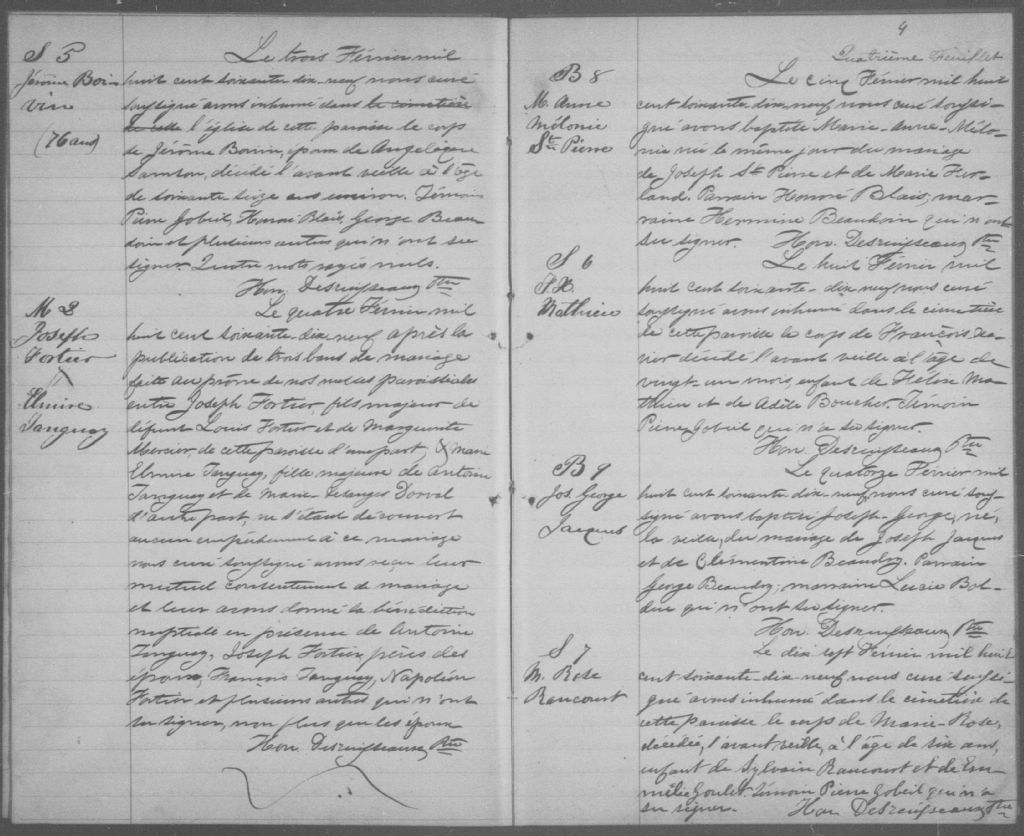 S 5
Jérôme Boivin
(76 ans)
Le trois Février mil
huit cent soixante dix-neuf nous curé
soussigné avons inhumé dans le cimetière
de cette l'église de cette paroisse le corps
de Jérôme Boivin, époux de Angel
Samson, décédé l'avant veille à l'âge
de soixante seize ans environ. Témoins
Pierre Jobeil, Honoré Blais, George Beau-
doin et plusieurs autres qui n'ont su
signer. Quatre mots rayés nuls.
Hon. Desruisseaux Ptre
M 3
Joseph
Fortier
&
Elmire
Tanguay
Le quatre Février mil
huit cent soixante dix-neuf après la
publication de trois bans de mariage
faite au prône de nos messes paroissiales
entre Joseph Fortier, fils majeur de
défunt Louis Fortier et de Marguerite
Mercier, de cette paroisse d'une part, & Marie
Elmire Tanguay, fille majeure de Antoine
Tanguay et de Marie Desanges Dorval
d'autre part, ne s'étant découvert
aucun empêchement à ce mariage
nous curé soussigné avons reçu leur
mutuel consentement de mariage
et leur avons donné la bénédiction
nuptiale en présence de Antoine
Tanguay, Joseph Fortier, pères des
époux, François Tanguay, Napoléon
Fortier et plusieurs autres qui n'ont
su signer, non plus que les époux
Hon. Desruisseaux Ptre
4
Quatrième Feuillet
B 8
M. Anne
Mélonie
St. Pierre
Le cinq Février mil huit
cent soixante-dix-neuf nous curé soussi-
gné avons baptisé Marie-Anne-Mélo-
nie née le même jour du mariage
de Joseph St. Pierre et de Marie Fer-
land. Parrain Honoré Blais, mar-
raine Hermine Beaudoin qui n'ont
su signer. Hon. Desruisseaux Ptre
S 6
F. X.
Mathieu
Le huit Février mil
huit cent soixante-dix neuf nous curé
soussigné avons inhumé dans le cimetière
de cette paroisse le corps de François-Xa-
vier décédé l'avant veille à l'âge de
vingt-un mois, enfant de Mat-
thieu et de Adèle Boucher. Témoin
Pierre Jobeil qui n'a su signer.
Hon. Desruisseaux Ptre
B 9
Jos. George
Jacques
Le quatorze Février mil
huit cent soixante-dix-neuf nous curé sous-
signé avons baptisé Joseph-George, né,
la veille, du mariage de Joseph Jacques
et de Clémentine Beaudry. Parrain
George Beaudry; marraine Lucie Bol-
duc qui n'ont su signer.
Hon. Desruisseaux Ptre
S 7
M. Rose
Rancourt
Le dix sept Février mil huit
cent soixante-dix-neuf nous curé soussi-
gné avons inhumé dans le cimetière de
cette paroisse le corps de Marie-Rose,
décédée, l'avant veille, à l'âge de six ans,
enfant de Sylvain Rancourt et de Em-
mélie Goulet. Témoin Pierre Jobeil qui n'a
su signer. Hon. Desruisseaux Ptre